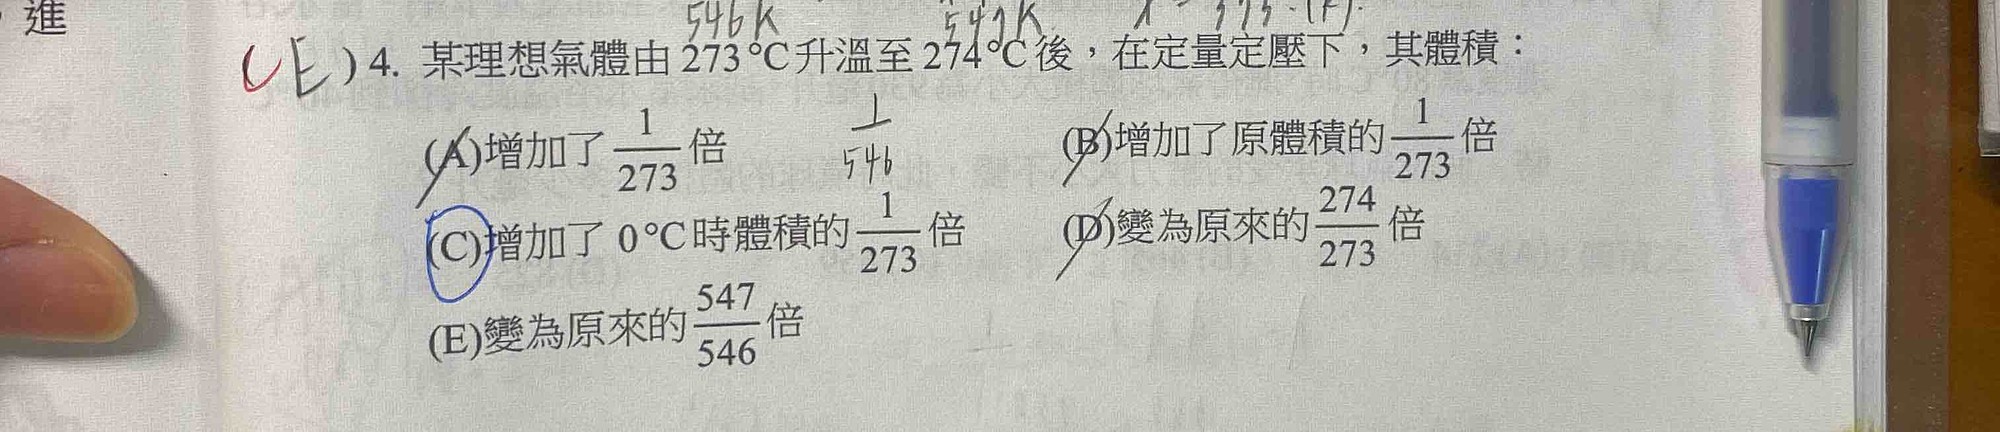 進
546K 547K
(CE)4. 某理想氣體由 273℃升溫至 274℃後，在定量定壓下，其體積：
(A)增加了 1/273 倍 1/546 (B)增加了原體積的 1/273 倍
(C)增加了 0℃時體積的 1/273 倍 (D)變為原來的 274/273 倍
(E)變為原來的 547/546 倍